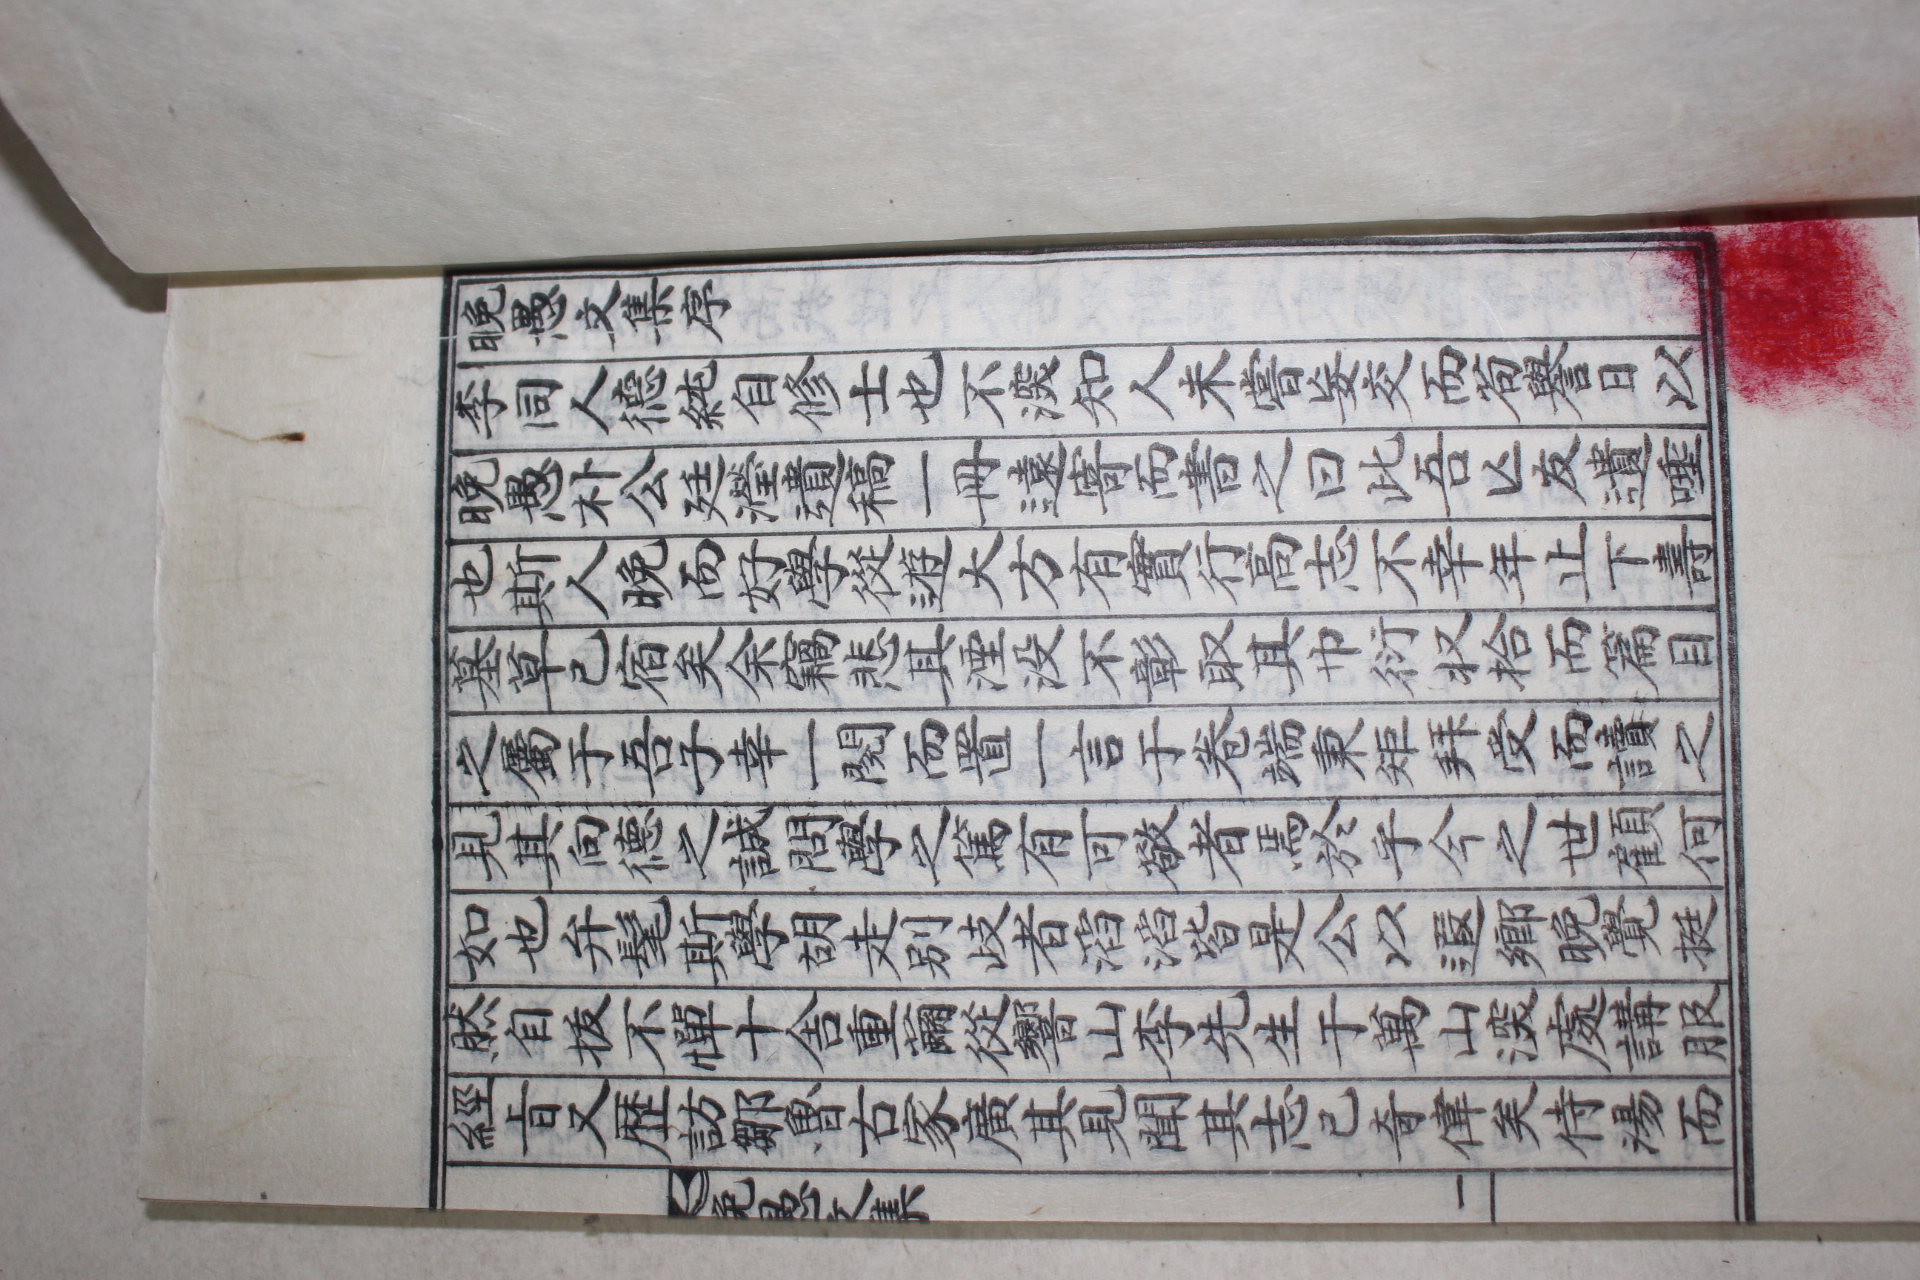 晩愚文集序
李同人德純自修士也不深知人未嘗妄交而苟譽日以
晩愚朴公廷瀅遺稿一冊遠寄而書之曰此吾亡友遺唾
也斯人晩而好學從遊大方有實行高志不幸年止下壽
墓草已宿矣余竊悲其湮没不彰取其巾衍收拾而篇目
之屬于吾子幸一閱而置一言于卷端秉矩拜受而讀之
見其向德之誠問學之篤有可敬者焉於乎今之世顧何
如也弁髦斯學胡走別歧者滔滔皆是公以遐鄕晩覺挺
然自拔不憚十舍重繭從響山李先生于萬山深處講服
經旨又歷訪鄒魯古家廣其見聞其志已奇偉矣侍湯而
晩愚文集 一